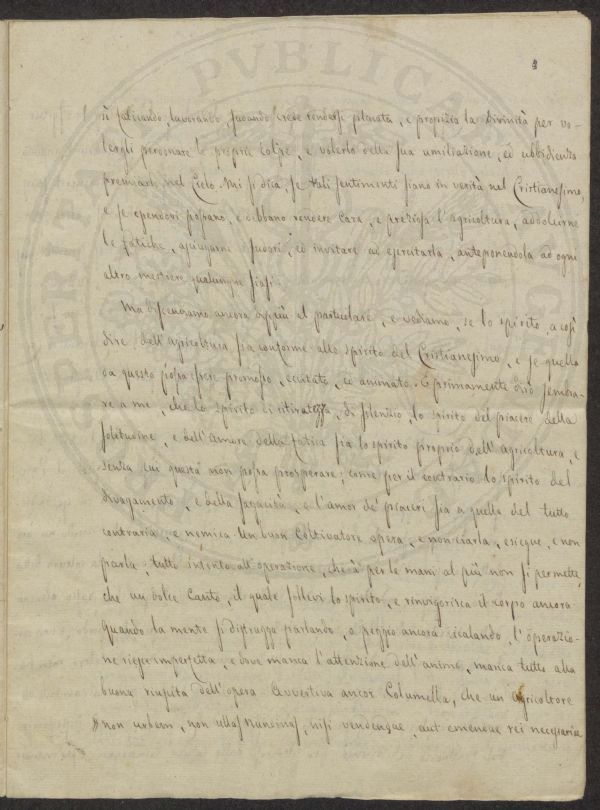 4
sì faticando, lavorando, sudando crede rendersi placata, e propizia la Divinità per vo-
lergli perdonare le proprie colpe, e volerlo della sua umiliazione, ed ubbidienza
premiarlo nel Cielo. Mi si dica, se tali sentimenti siano in verità nel Cristianesimo,
e se essendovi possano, e debbano rendere cara, e preziosa l'agricoltura, addolcirne
le fatiche, asciugarne i sudori, ed invitare ad esercitarla, anteponendola ad ogni
altro mestiere qualunque siasi.
Ma discendiamo ancora dippiù al particolare, e vediamo, se lo spirito, a così
dire dell'agricoltura sia conforme allo spirito del Cristianesimo, e se quello
da questo possa essere promosso, eccitato, ed animato. E primamente dirò sembra-
re a me, che lo spirito di ritiratezza, di silenzio, lo spirito del piacere della
solitudine, e dell'amore della fatica sia lo spirito proprio dell'agricoltura, e
senza cui questa non possa prosperare; come per il contrario lo spirito del
divagamento, e della, e l'amor de' piaceri sia a quella del tutto
contraria, e nemica. Un buon coltivatore opera, e non ciarla, esiegue, e non
parla, tutto intento all'operazione, che à per le mani al più non si permette,
che un dolce canto, il quale sollevi lo spirito, e rinvigorisca il corpo ancora.
Quando la mente si distragga parlando, o peggio ancora cicalando, l'operazio-
ne riesce imperfetta, e dove manca l'attenzione dell'animo, manca tutto alla
buona riuscita dell'opera. Avvertiva ancor Columella, che un agricoltore
» non urbem, non ullas nundinas, nisi vendendae, aut emendae rei necessariae